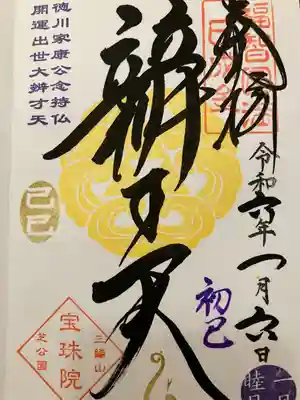 奉拝
令和六年一月六日
初巳
辨才天
徳川家康公念持仏
開運出世大辨才天
己巳
三縁山
宝珠院
芝公園
一月
睦月